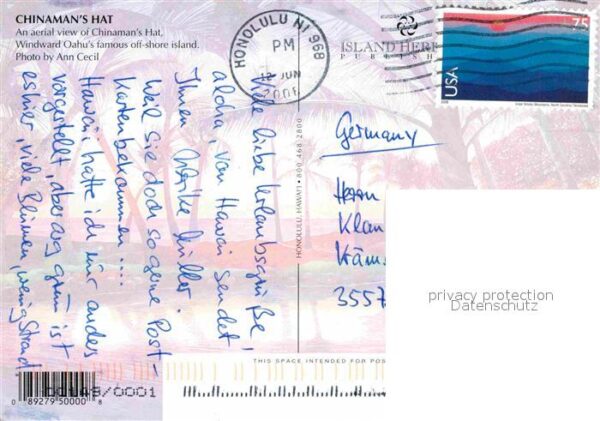 CHINAMAN'S HAT
An aerial view of Chinaman's Hat,
Windward Oahu's famous off-shore island.
Photo by Ann Cecil
HONOLULU HI 968
PM
JUN
ISLAND HER
PUBLISH
75
USA
Viele liebe Urlaubsgrüße!
aloha, von Hawaii sendet
Ihnen Müller.
Weil sie doch so gerne Post-
karten bekommen....
Hawaii hatte ich mir anders
vorgestellt, aber arg grün ist
es hier, viele Blumen, wenig Strand
HONOLULU, HAWAI'I • 800-468-2800
Germany
Herrn
Klau
Kräm
3557
privacy protection
Datenschutz
THIS SPACE INTENDED FOR POS
00149/0001
0 89279 50000 8